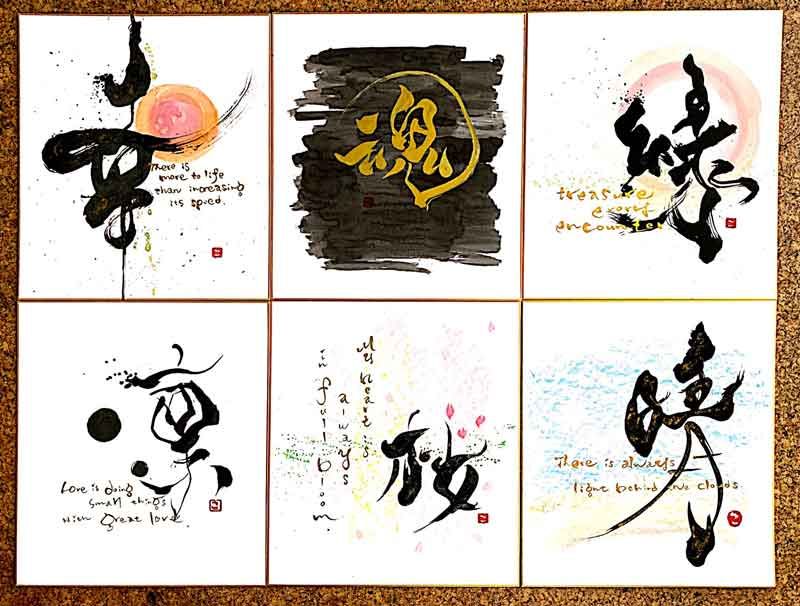 幸
There is
more to life
than increasing
its speed.
魂
縁
treasure
every
encounter
凛
Love is doing
small things
with great love.
My heart is
always
in full bloom.
桜
晴
There is always
light behind the clouds